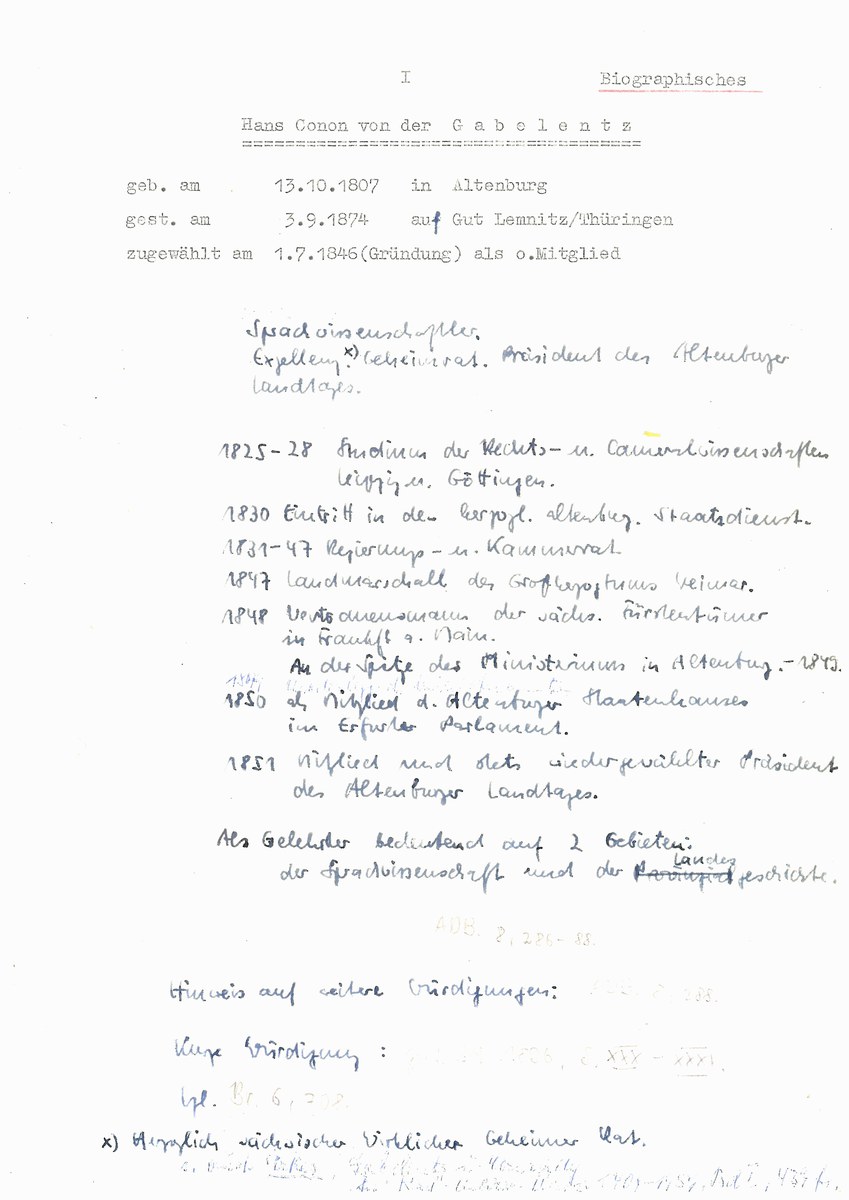 I Biographisches
Hans Conon von der G a b e l e n t z
geb. am 13.10.1807 in Altenburg
gest. am 3.9.1874 auf Gut Lemnitz/Thüringen
zugewählt am 1.7.1846(Gründung) als o.Mitglied
Sprachwissenschaftler.
Exzellenz. x) Geheimrat. Präsident des Altenburger
Landtages.
1825-28 Studium der Rechts- u. Cameralwissenschaften
Leipzig u. Göttingen.
1830 Eintritt in den herzogl. altenburg. Staatsdienst.
1831-47 Regierungs- u. Kammerrat
1847 Landmarschall des Großherzogtums Weimar.
1848 Vertrauensmann der sächs. Fürstentümer
in Frankft a. Main.
An der Spitze des Ministeriums in Altenburg. - 1849.
1850 als Mitglied d. Altenburger Staatenhauses
im Erfurter Parlament.
1851 Mitglied und stets wiedergewählter Präsident
des Altenburger Landtages.
Als Gelehrter bedeutend auf 2 Gebieten:
Landes
der Sprachwissenschaft und der Provinzialgeschichte.
ADB. 8, 286-88.
Hinweis auf weitere Würdigungen: 288.
Kurze Würdigung: 1886, S. XXX - XXXI.
Vgl. Br. 6, 708.
x) Herzoglich sächsischer Wirklicher Geheimer Rat.